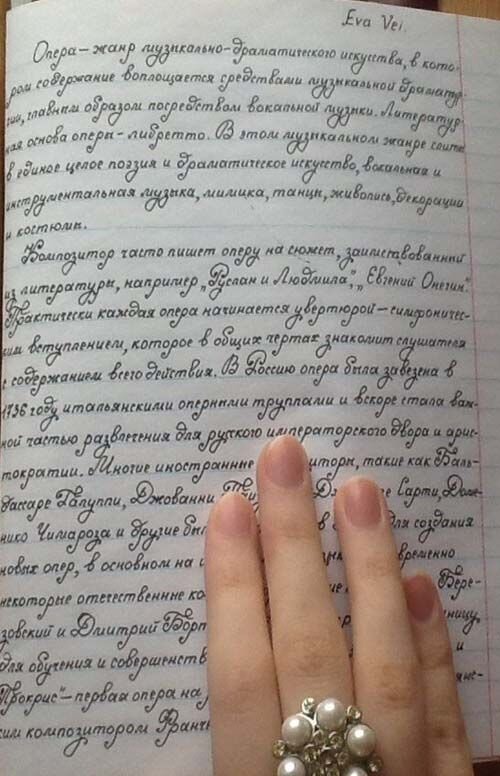 Eva Vei.
Опера – жанр музыкально-драматического искусства, в кото-
ром содержание воплощается средствами музыкальной драматур-
гии, главным образом посредством вокальной музыки. Литератур-
ная основа оперы – либретто. В этом музыкальном жанре слиты
в единое целое поэзия и драматическое искусство, вокальная и
инструментальная музыка, мимика, танцы, живопись, декорации
и костюмы.
Композитор часто пишет оперу на сюжет, заимствованный
из литературы, например „Руслан и Людмила”, „Евгений Онегин”.
Практически каждая опера начинается увертюрой – симфоничес-
ким вступлением, которое в общих чертах знакомит слушателя
с содержанием всего действия. В Россию опера была завезена в
1736 году итальянскими оперными труппами и вскоре стала важ-
ной частью развлечения для русского императорского двора и арис-
тократии. Многие иностранные такие как Баль-
дассаре Галуппи, Джованни Сарти, Доме-
нико Чимароза и другие в для создания
новых опер, в основном на
некоторые отечественные Бере-
зовский и Дмитрий
для обучения и и
Прокрис” – первая опера на
ким композитором